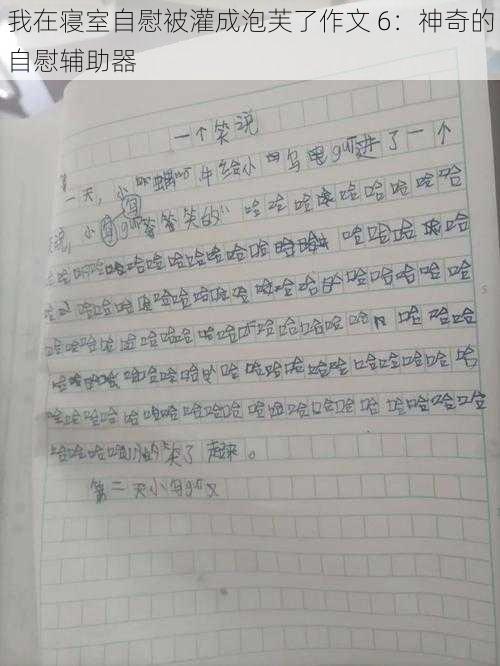 我在寝室自慰被灌成泡芙了作文 6：神奇的
自慰辅助器
一个笑说
一天，小蜗牛给小乌龟讲了一个
笑说，小乌龟答答笑的哈哈哈哈哈哈哈哈
哈哈哈哈哈哈哈哈哈哈哈哈哈哈哈
哈哈哈哈哈哈哈哈哈哈哈哈哈哈哈哈
哈哈哈哈哈哈哈哈哈哈哈哈哈哈哈
哈哈哈哈哈哈哈哈哈哈哈哈哈哈哈哈
哈哈哈哈哈哈哈哈哈哈哈哈哈哈哈哈
哈哈哈哈的笑了起来。
第二天小乌gui又